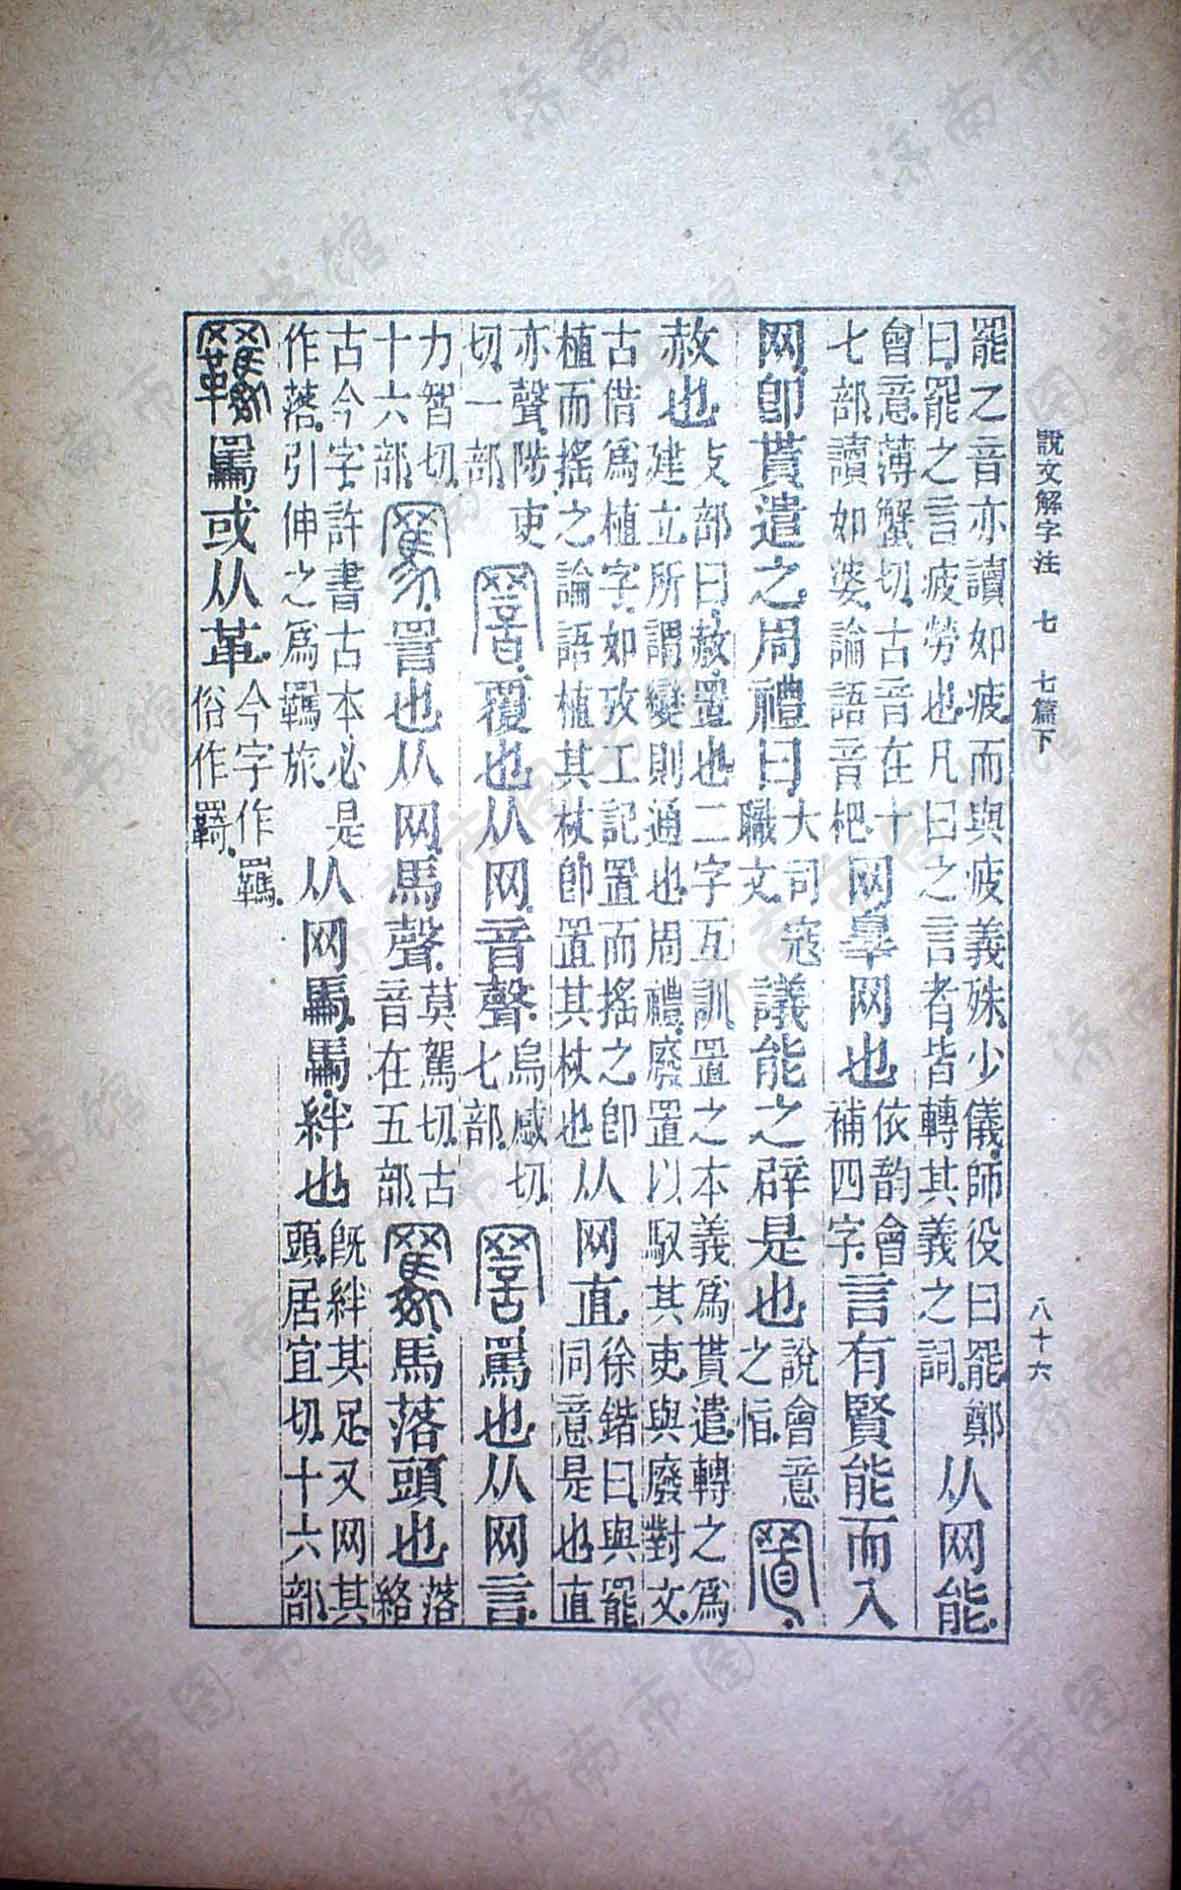 說文解字注　七　七篇下
八十六
罷之音亦讀如疲。而與疲義殊。少儀。師役曰罷。鄭曰。罷之言疲勞也。凡曰之言者皆轉其義之詞。从网能。
會意。薄蟹切。古音在十七部。讀如婆。論語音杷。网辠网也依韵會補四字。言有賢能而入
网。卽貰遣之。周禮曰。大司寇職文。議能之辟是也。說會意之恉。置
赦也。攴部曰。赦、置也。二字互訓。置之本義爲貰遣。轉之爲建立。所謂變則通也。周禮。廢置以馭其吏。與廢對文。
古借爲植字。如攷工記置而搖之卽植而搖之。論語植其杖卽置其杖也。从网直。徐鍇曰。與罷同意。是也。直
亦聲。陟吏切。一部。罯覆也。从网音聲。烏感切。七部。詈罵也。从网言。
力智切。十六部。罵詈也。从网馬聲。莫駕切。古音在五部。馽馬落頭也。落絡
古今字。許書古本必是作落。引伸之爲羈旅。从网馽。馽。絆也。旣絆其足。又网其頭。居宜切。十六部。
羈䍜或从革。今字作羈。俗作羇。